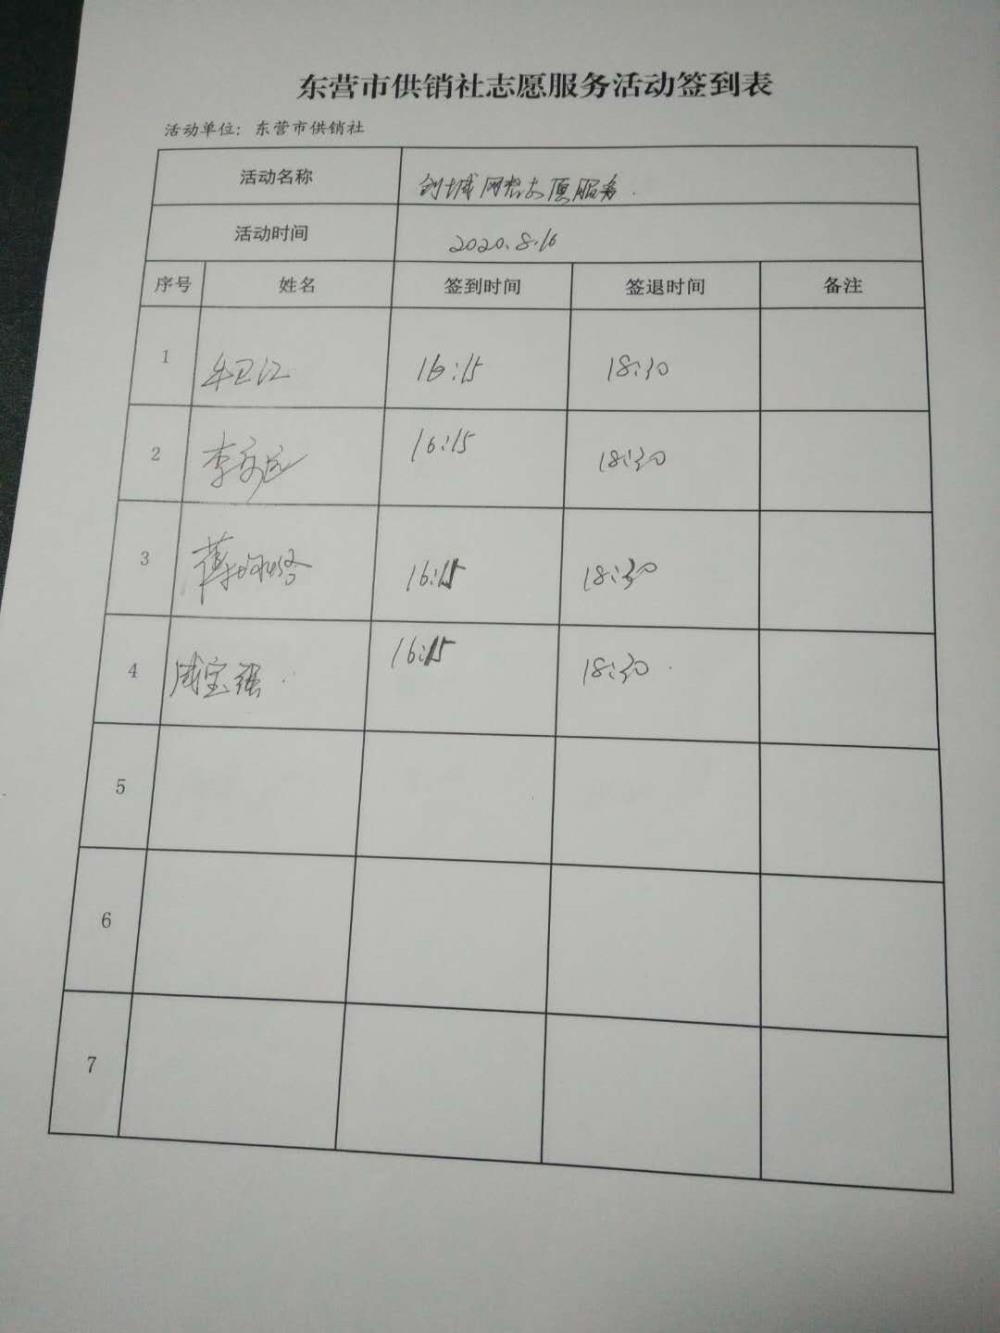 东营市供销社志愿服务活动签到表
活动单位：东营市供销社
活动名称 创城网格志愿服务.
活动时间 2020.8.16
序号 姓名 签到时间 签退时间 备注
1 牟卫江 16:15 18:30
2 李 16:15 18:30
3 薄 16:15 18:30
4 成宝强 16:15 18:30
5
6
7